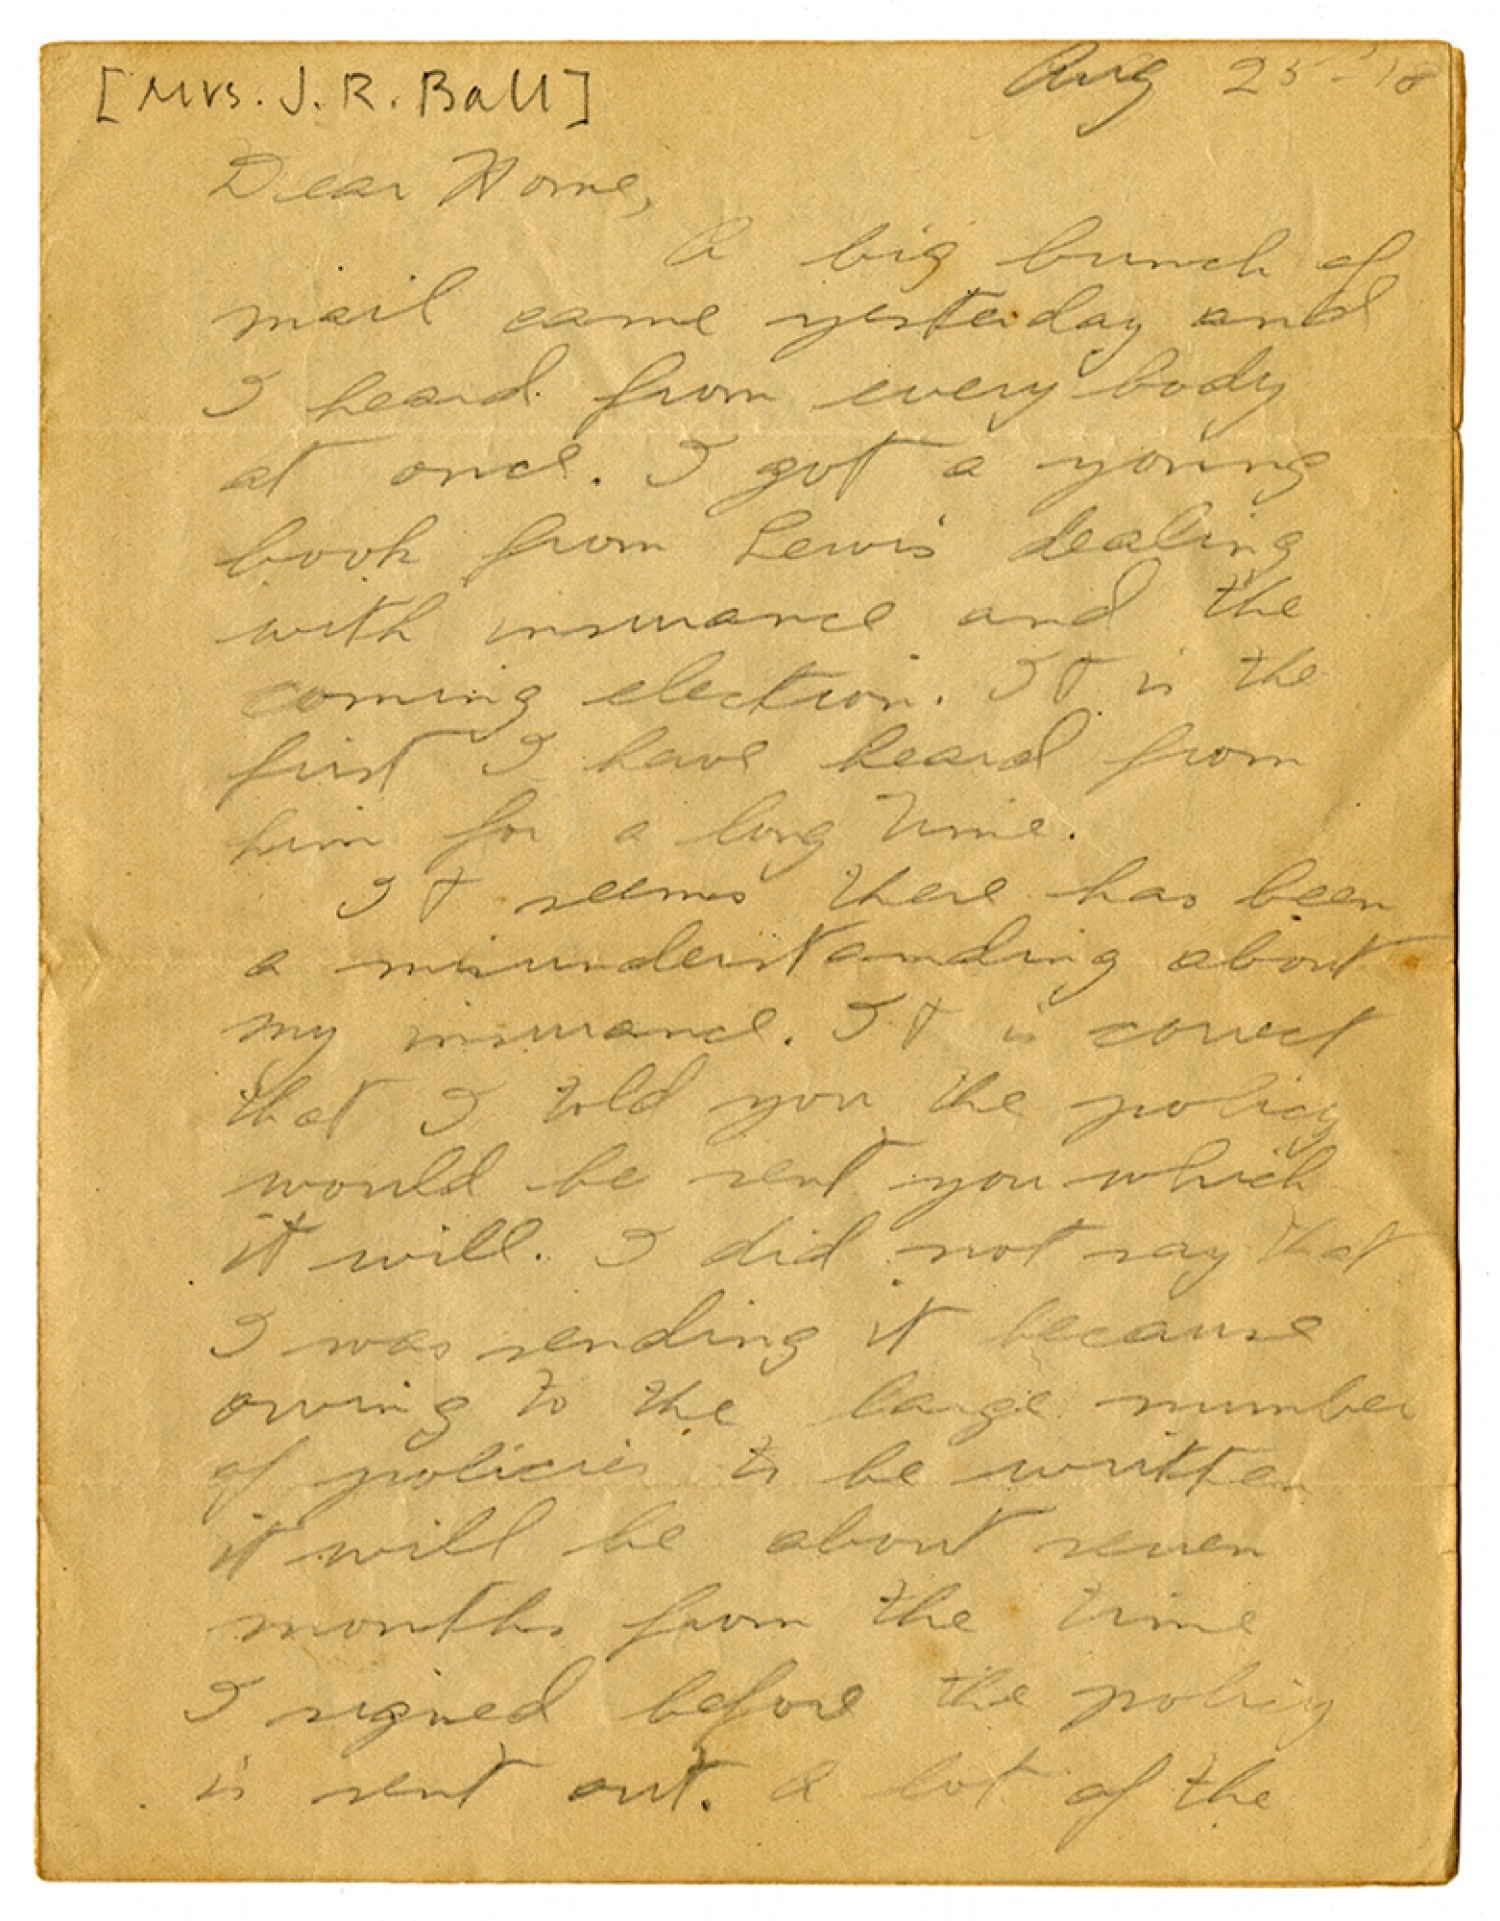 [Mrs. J. R. Ball]
Aug 25 - '18
Dear Home,
A big bunch of
mail came yesterday and
I heard from every body
at once. I got a young
book from Lewis dealing
with insurance and the
coming election. It is the
first I have heard from
him for a long time.
It seems there has been
a misunderstanding about
my insurance. It is correct
that I told you the policy
would be sent you which
it will. I did not say that
I was sending it because
owing to the large number
of policies to be written
it will be about seven
months from the time
I signed before the policy
is sent out. A lot of the